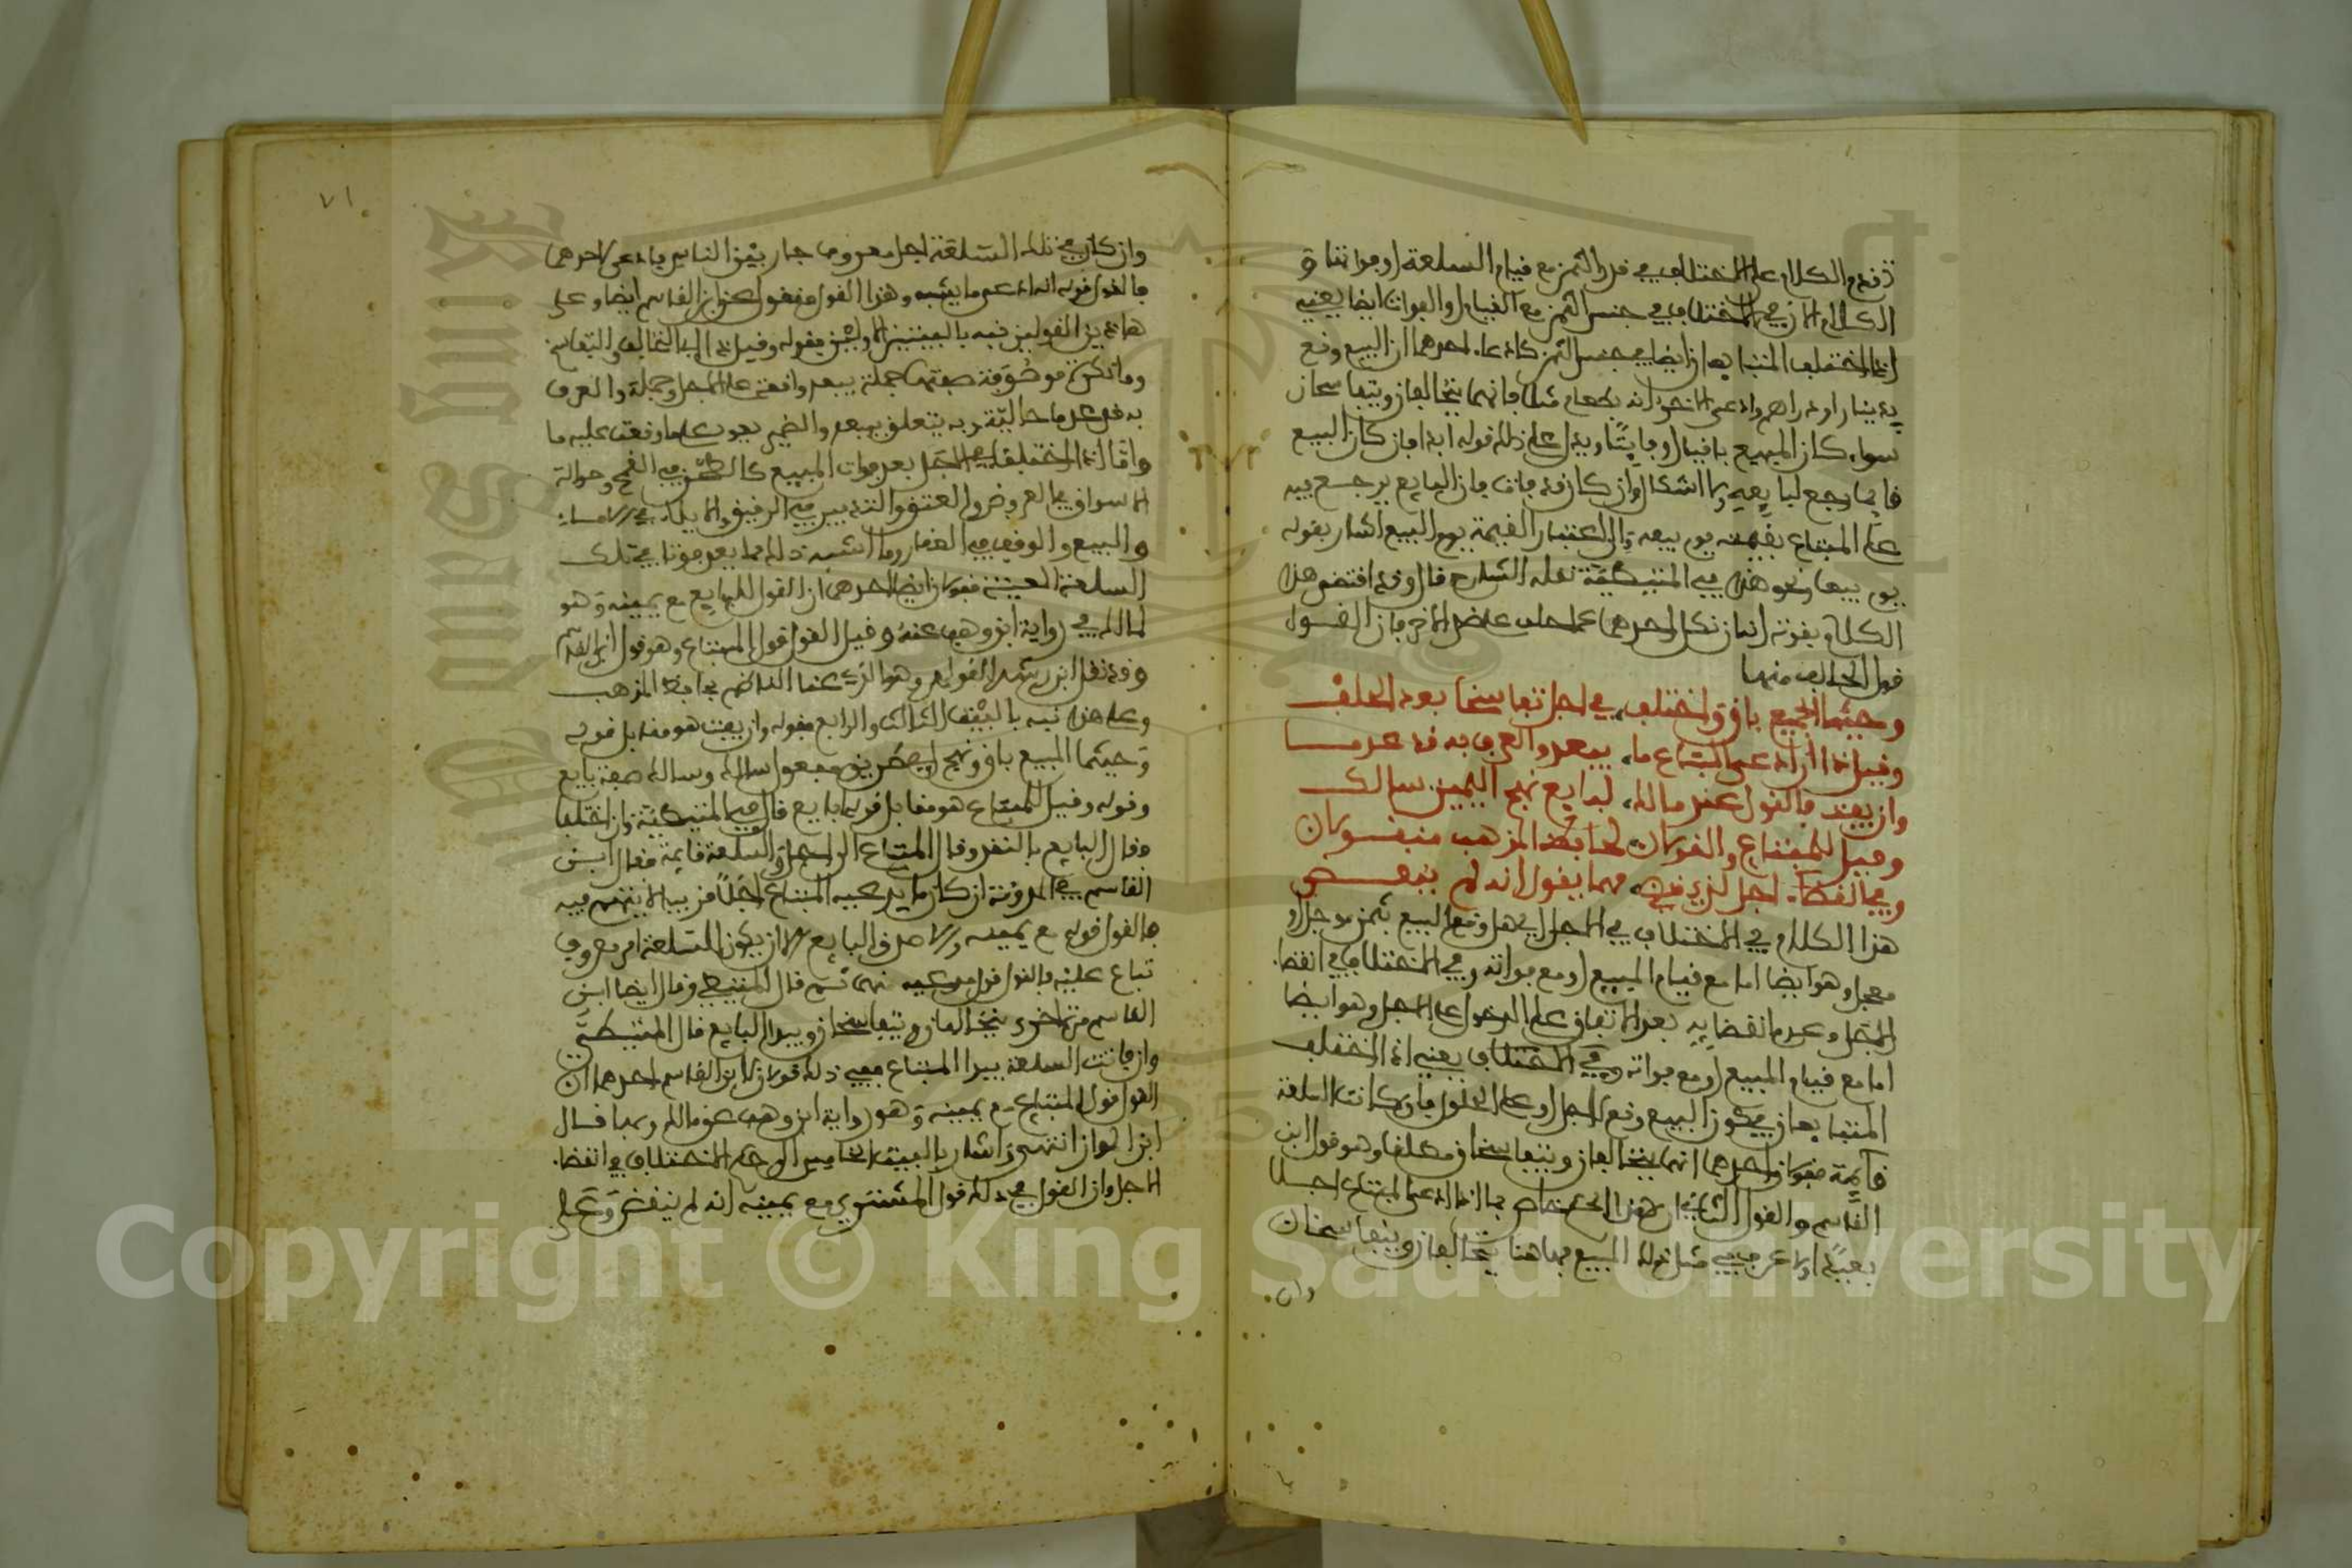 تقدم الكلام على الاختلاف في قدر الثمن مع قيام السلعة او فواتها و
الكلام الان في الاختلاف في جنس الثمن مع القيام او الفوات ايضا يعني
اذا اختلف المتبايعان ايضا في جنس الثمن كادعاء احدهما ان البيع وقع
بدينار او دراهم وادعى الاخر انه بطعام مثلا فانهما يتحالفان ويتفاسخان
سواء كان المبيع باقيا او فايتا ويدل على ذلك قوله ابدا فان كان البيع
قايما رجع لبايعه ولا اشكال وان كان قد فات فان البايع يرجع فيه
على المبتاع بقيمته يوم بيعه والى اعتبار القيمة يوم البيع اشار بقوله
يوم بيعها ونحو هذا في المتيطية نقله الشارح قال وقد اقتضى هذا
الكلام بقوته انه ان نكل احدهما عما حلف عليه الاخر فان القول
قول الحالف منهما
وحيثما المبيع باق واختلف في اجل تفاسخا بعد الحلف
وقيل ذا ان ادعى المبتاع ما يبعد والعرف به قد عدما
وان يفت فالقول عند مالك لبايع نهج اليمين سالك
وقيل للمبتاع والقولان لحافظ المذهب منقولان
وفي انقضاء اجل لذي قضي مهما يقول انه لم ينقض
هذا الكلام في الاختلاف في الاجل اي هل وقع البيع بثمن موجل او
معجل وهو ايضا اما مع قيام المبيع او مع فواته وفي الاختلاف في انقضاء
الاجل وعدم انقضايه بعد الاتفاق على الدخول على الاجل وهو ايضا
اما مع قيام المبيع او مع فواته وفي الاختلاف يعني اذا اختلف
المتبايعان في كون البيع وقع لاجل او على الحلول فان كانت السلعة
قايمة فقولان احدهما انهما يتحالفان ويتفاسخان مطلقا وهو قول ابن
القاسم والقول الثاني ان هذا الحكم خاص بما اذا ادعى المبتاع اجلا
بعيدا ولا عرف في مثل ذلك المبيع فهاهنا يتحالفان ويتفاسخان
وان
٧١
وان كان في تلك السلعة اجل معروف جار بين الناس فادعى احدهما
فالقول قوله انه ادعى ما يشبه وهذا القول منقول عن ابن القاسم ايضا وعلى
هاذين القولين نبه بالبيتين الاولين بقوله وقيل ذا البا التحالف والتفاسخ
وما نكرة موصوفة صفتها جملة يبعد واقعة على الاجل وجملة والعرف
به قد عدما حالية وبه يتعلق بيبعد والضمير يعود على ما وقعت عليه ما
واما اذا اختلفا في الاجل بعد فوات المبيع كالطحن في القمح وحوالة
الاسواق في العروض والعتق والتدبير في الرقيق والايلاد في الاماء
والبيع والوقف في العقار وما اشبه ذلك مما يعد فوتا في تلك
السلعة المعينة فقولان ايضا احدهما ان القول للبايع مع يمينه وهو
لمالك في رواية ابن وهب عنه وقيل القول قول المبتاع وهو قول ابن القاسم
وقد نقل ابن رشد القولين وهو الذي عنا الناظم بحافظ المذهب
وعلى هذا نبه بالبيت الثالث والرابع بقوله وان يفت هو مقابل قوله
وحيثما المبيع باق ونهج اي طريق مفعول سالك وسالك صفة بايع
وقوله وقيل للمبتاع هو مقابل قوله لبايع قال في المتيطية وان اختلفا
وقال البايع بالنقد وقال المبتاع الى اجل والسلعة قايمة فقال ابن
القاسم في المدونة ان كان ما يدعيه المبتاع اجلا قريبا لا يتهم فيه
فالقول قوله مع يمينه والا صدق البايع الا ان يكون للسلعة امر معروف
تباع عليه فالقول قول مدعيه منهما ثم قال المتيطي وقال ايضا ابن
القاسم مرة اخرى يتحالفان ويتفاسخان ويبدا البايع قال المتيطي
وان فاتت السلعة بيد المبتاع ففي ذلك قولان لابن القاسم احدهما ان
القول قول المبتاع مع يمينه وهو رواية ابن وهب عن مالك وبها قال
ابن المواز انتهى واشار بالبيت الخامس الى حكم الاختلاف في انقضاء
الاجل وان القول في ذلك قول المشتري مع يمينه انه لم ينقض وعلى
Copyright © King Saud University